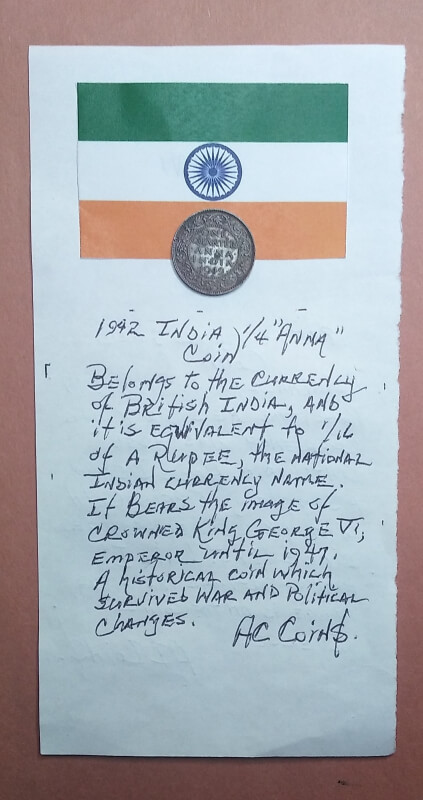 ONE
QUARTER
ANNA
INDIA
1942
1942 INDIA 1/4 "ANNA"
Coin
Belongs to the currency
of British INDIA, AND
it is equivalent to 1/16
of A Rupee, the NATIONAL
INDIAN CURRENCY NAME.
It Bears the image of
CROWNED King George VI,
EMPEROR UNTIL 1947.
A historical coin which
SURVIVED WAR AND Political
Changes.
AC Coin$.